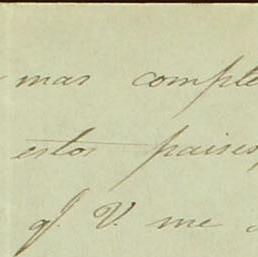 mas comple
estos paises,
qf. V. me